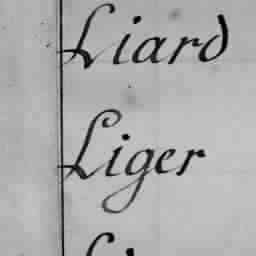 Liard
Liger